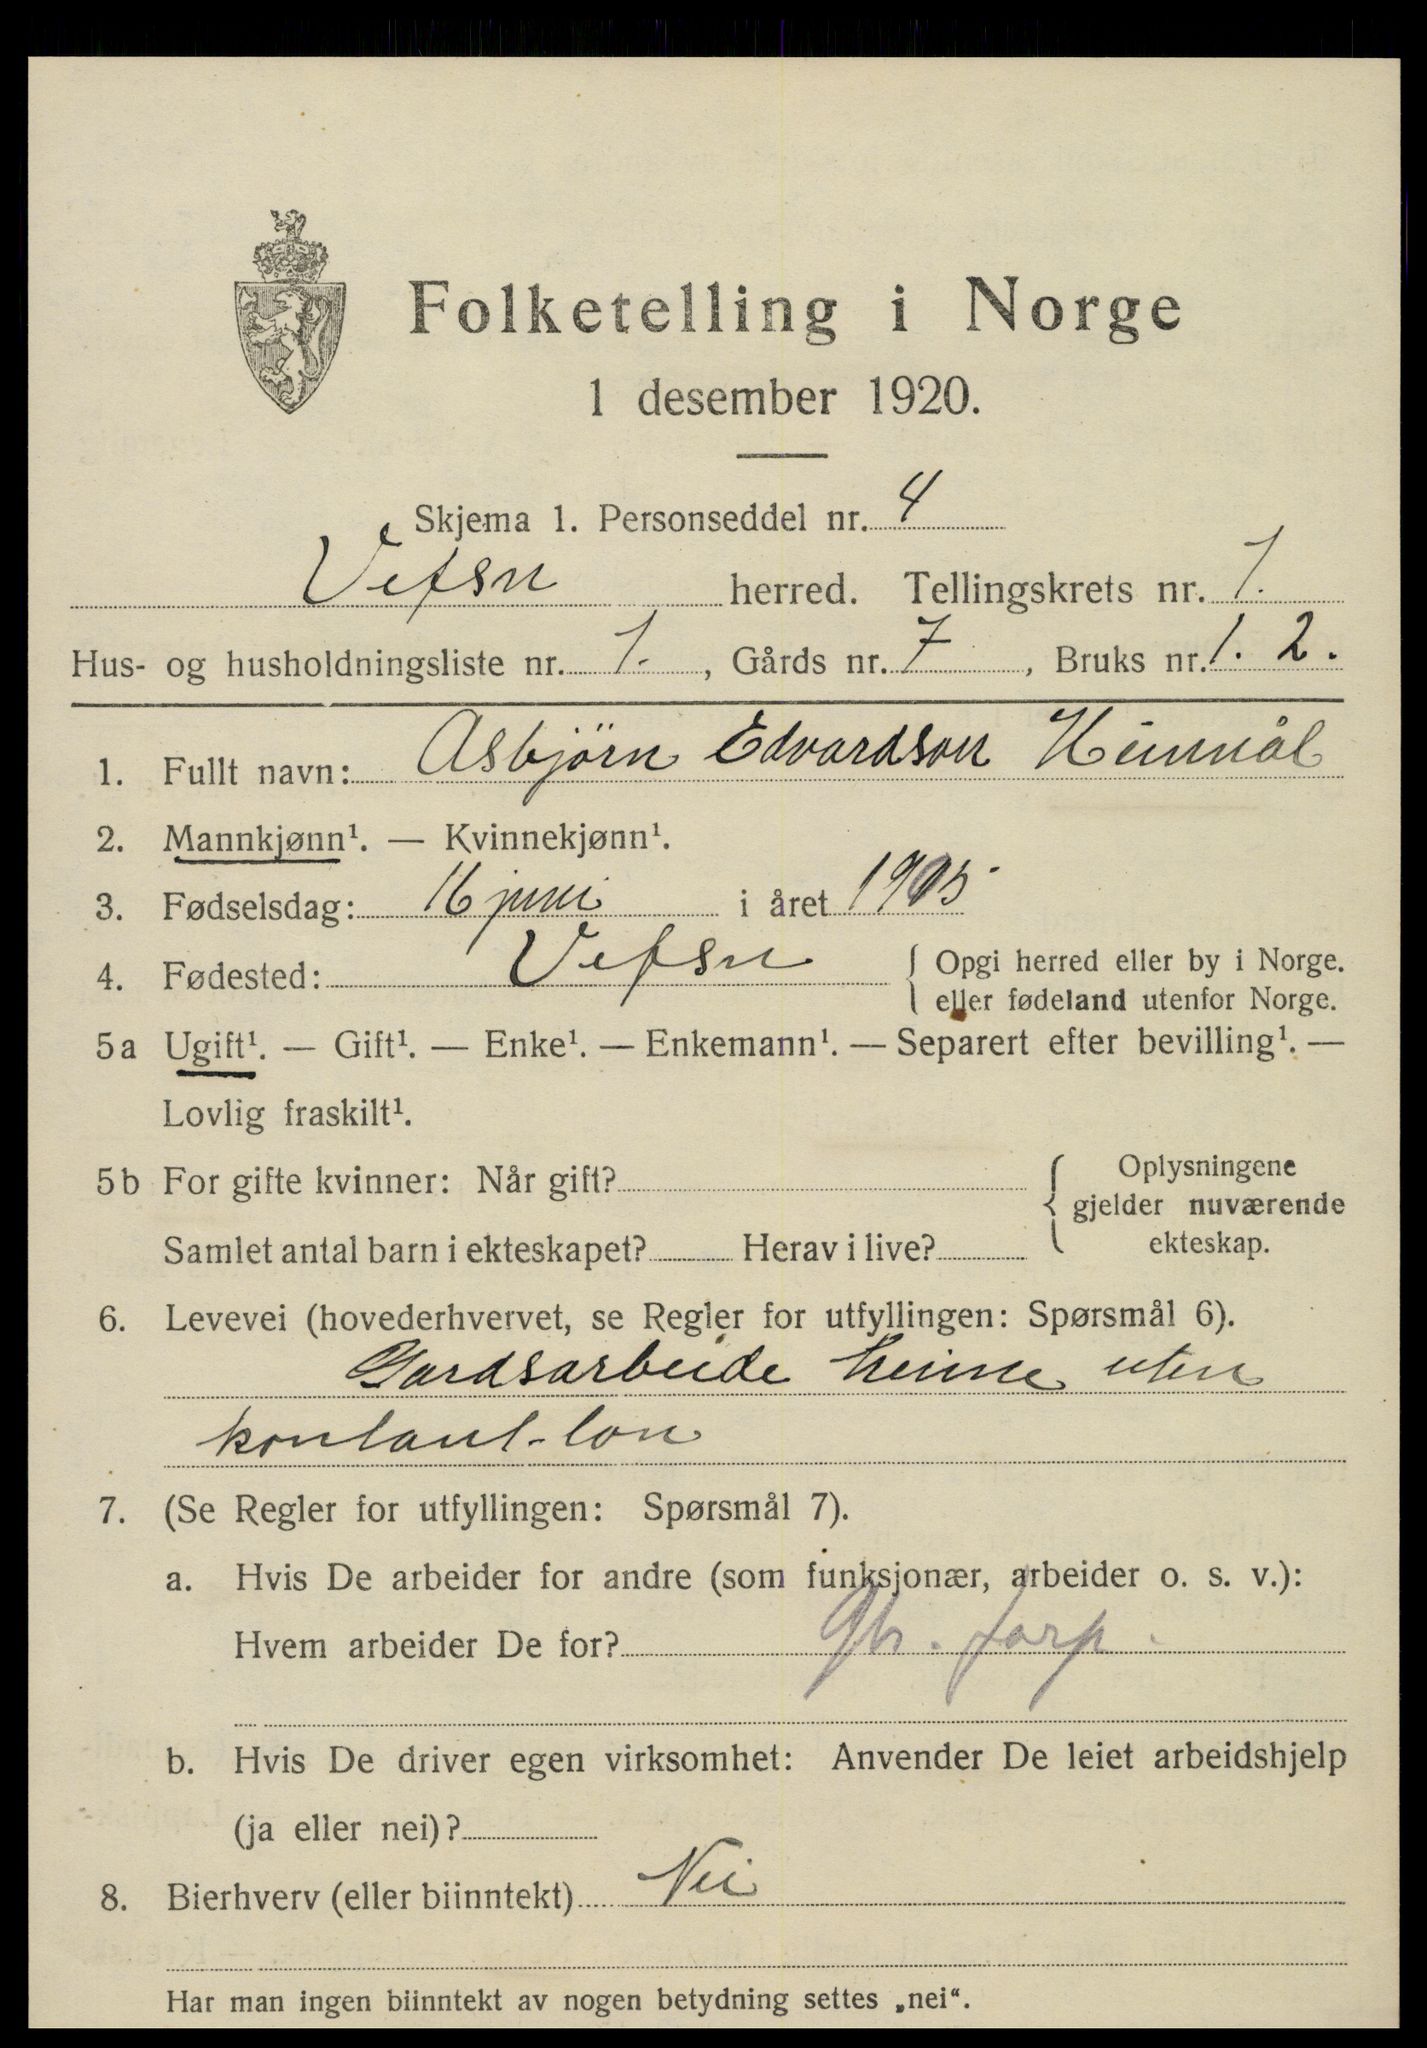 Folketelling i Norge
1 desember 1920.
Skjema 1. Personseddel nr. 4
Vefsn herred. Tellingskrets nr. 1.
Hus- og husholdningsliste nr. 1., Gårds nr. 7, Bruks nr. 1. 2.
1. Fullt navn: Asbjörn Edvardson
2. Mannkjønn¹. — Kvinnekjønn¹.
3. Fødselsdag: 16 juni i året 1905
4. Fødested: Vefsn { Opgi herred eller by i Norge.
eller fødeland utenfor Norge.
5a Ugift¹. — Gift¹. — Enke¹. — Enkemann¹. — Separert efter bevilling¹. —
Lovlig fraskilt¹.
5b For gifte kvinner: Når gift? { Oplysningene
gjelder nuværende
Samlet antal barn i ekteskapet? Herav i live? ekteskap.
6. Levevei (hovederhvervet, se Regler for utfyllingen: Spørsmål 6).
Gardsarbeide heime uten
kontant-lon
7. (Se Regler for utfyllingen: Spørsmål 7).
a. Hvis De arbeider for andre (som funksjonær, arbeider o. s. v.):
Hvem arbeider De for? Gbr. forp.
b. Hvis De driver egen virksomhet: Anvender De leiet arbeidshjelp
(ja eller nei)?
8. Bierhverv (eller biinntekt) Nei
Har man ingen biinntekt av nogen betydning settes „nei“.